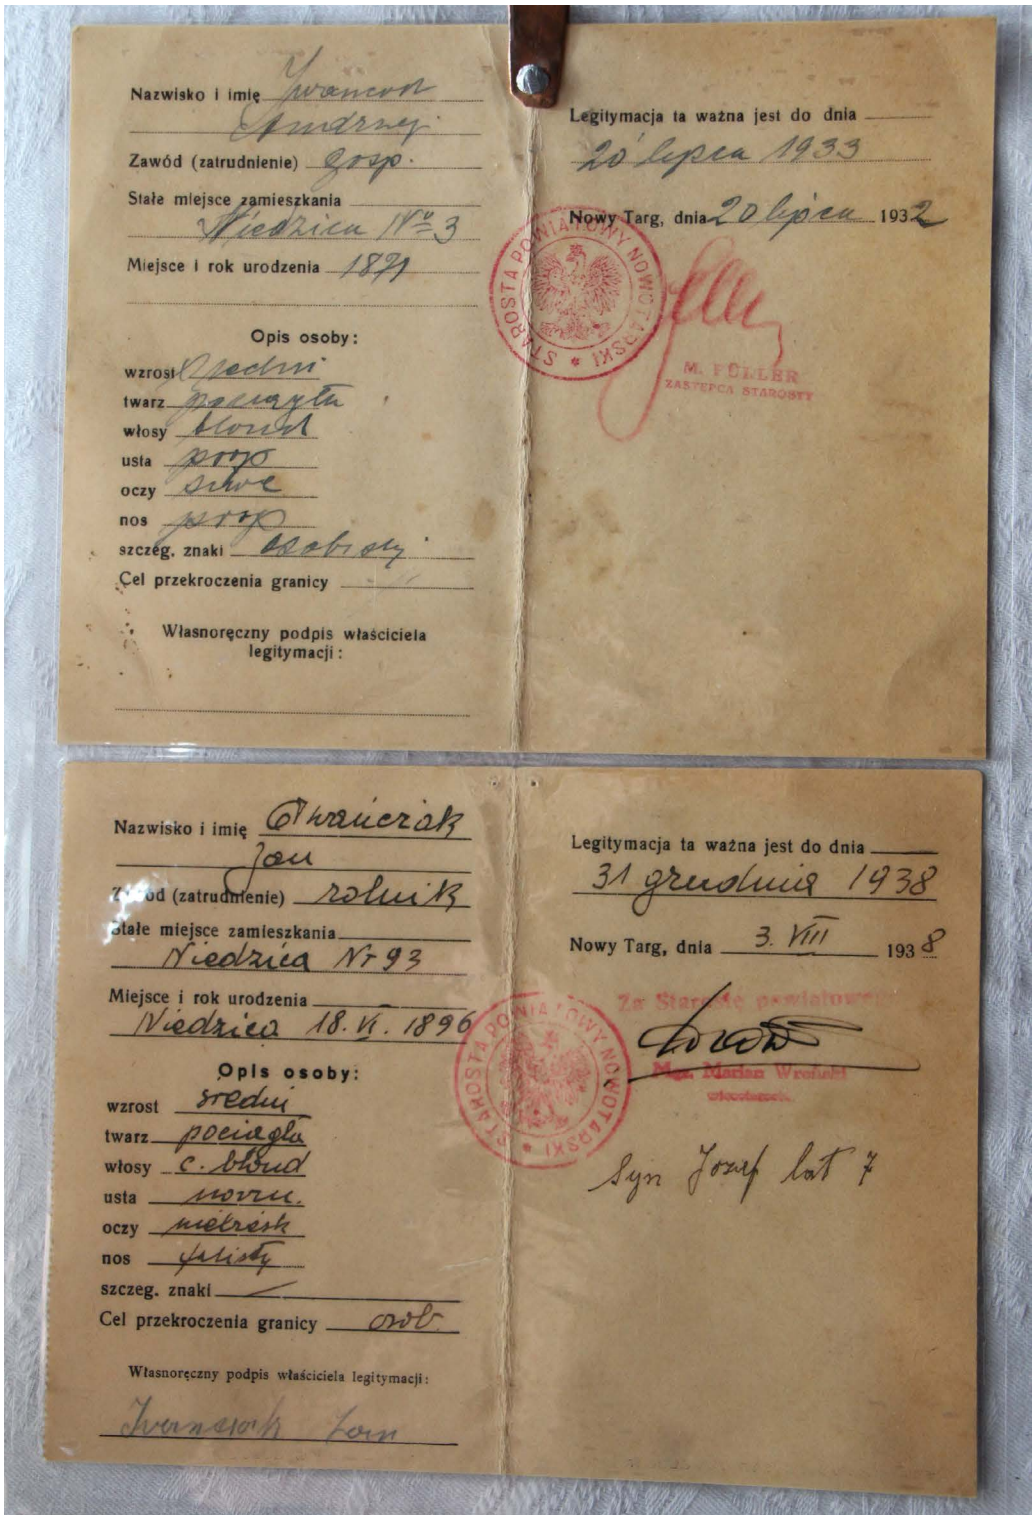 Nazwisko i imię
Andrzej
Zawód (zatrudnienie) gosp.
Stałe miejsce zamieszkania
Niedzica No 3
Miejsce i rok urodzenia 1871
Opis osoby:
wzrost średni
twarz pociągła
włosy blond
usta prop
oczy siwe
nos prop
szczeg. znaki osobisty
Cel przekroczenia granicy
Własnoręczny podpis właściciela
legitymacji:
Legitymacja ta ważna jest do dnia
20 lipca 1933
Nowy Targ, dnia 20 lipca 1932
STAROSTA POWIATOWY NOWOTARSKI
M. FÜLLER
ZASTĘPCA STAROSTY
Nazwisko i imię Iwańczak
Jan
Zawód (zatrudnienie) rolnik
Stałe miejsce zamieszkania
Niedzica Nr 93
Miejsce i rok urodzenia
Niedzica 18. VI. 1896
Opis osoby:
wzrost średni
twarz pociągła
włosy c. blond
usta norm.
oczy niebiesk
nos
szczeg. znaki
Cel przekroczenia granicy osob.
Własnoręczny podpis właściciela legitymacji:
Iwanczak Jan
Legitymacja ta ważna jest do dnia
31 grudnia 1938
Nowy Targ, dnia 3. VIII 1938
STAROSTA POWIATOWY NOWOTARSKI
Za Starostę powiatowego
Mgr. Marian Wroński
wicestarosta
Syn Józef lat 7